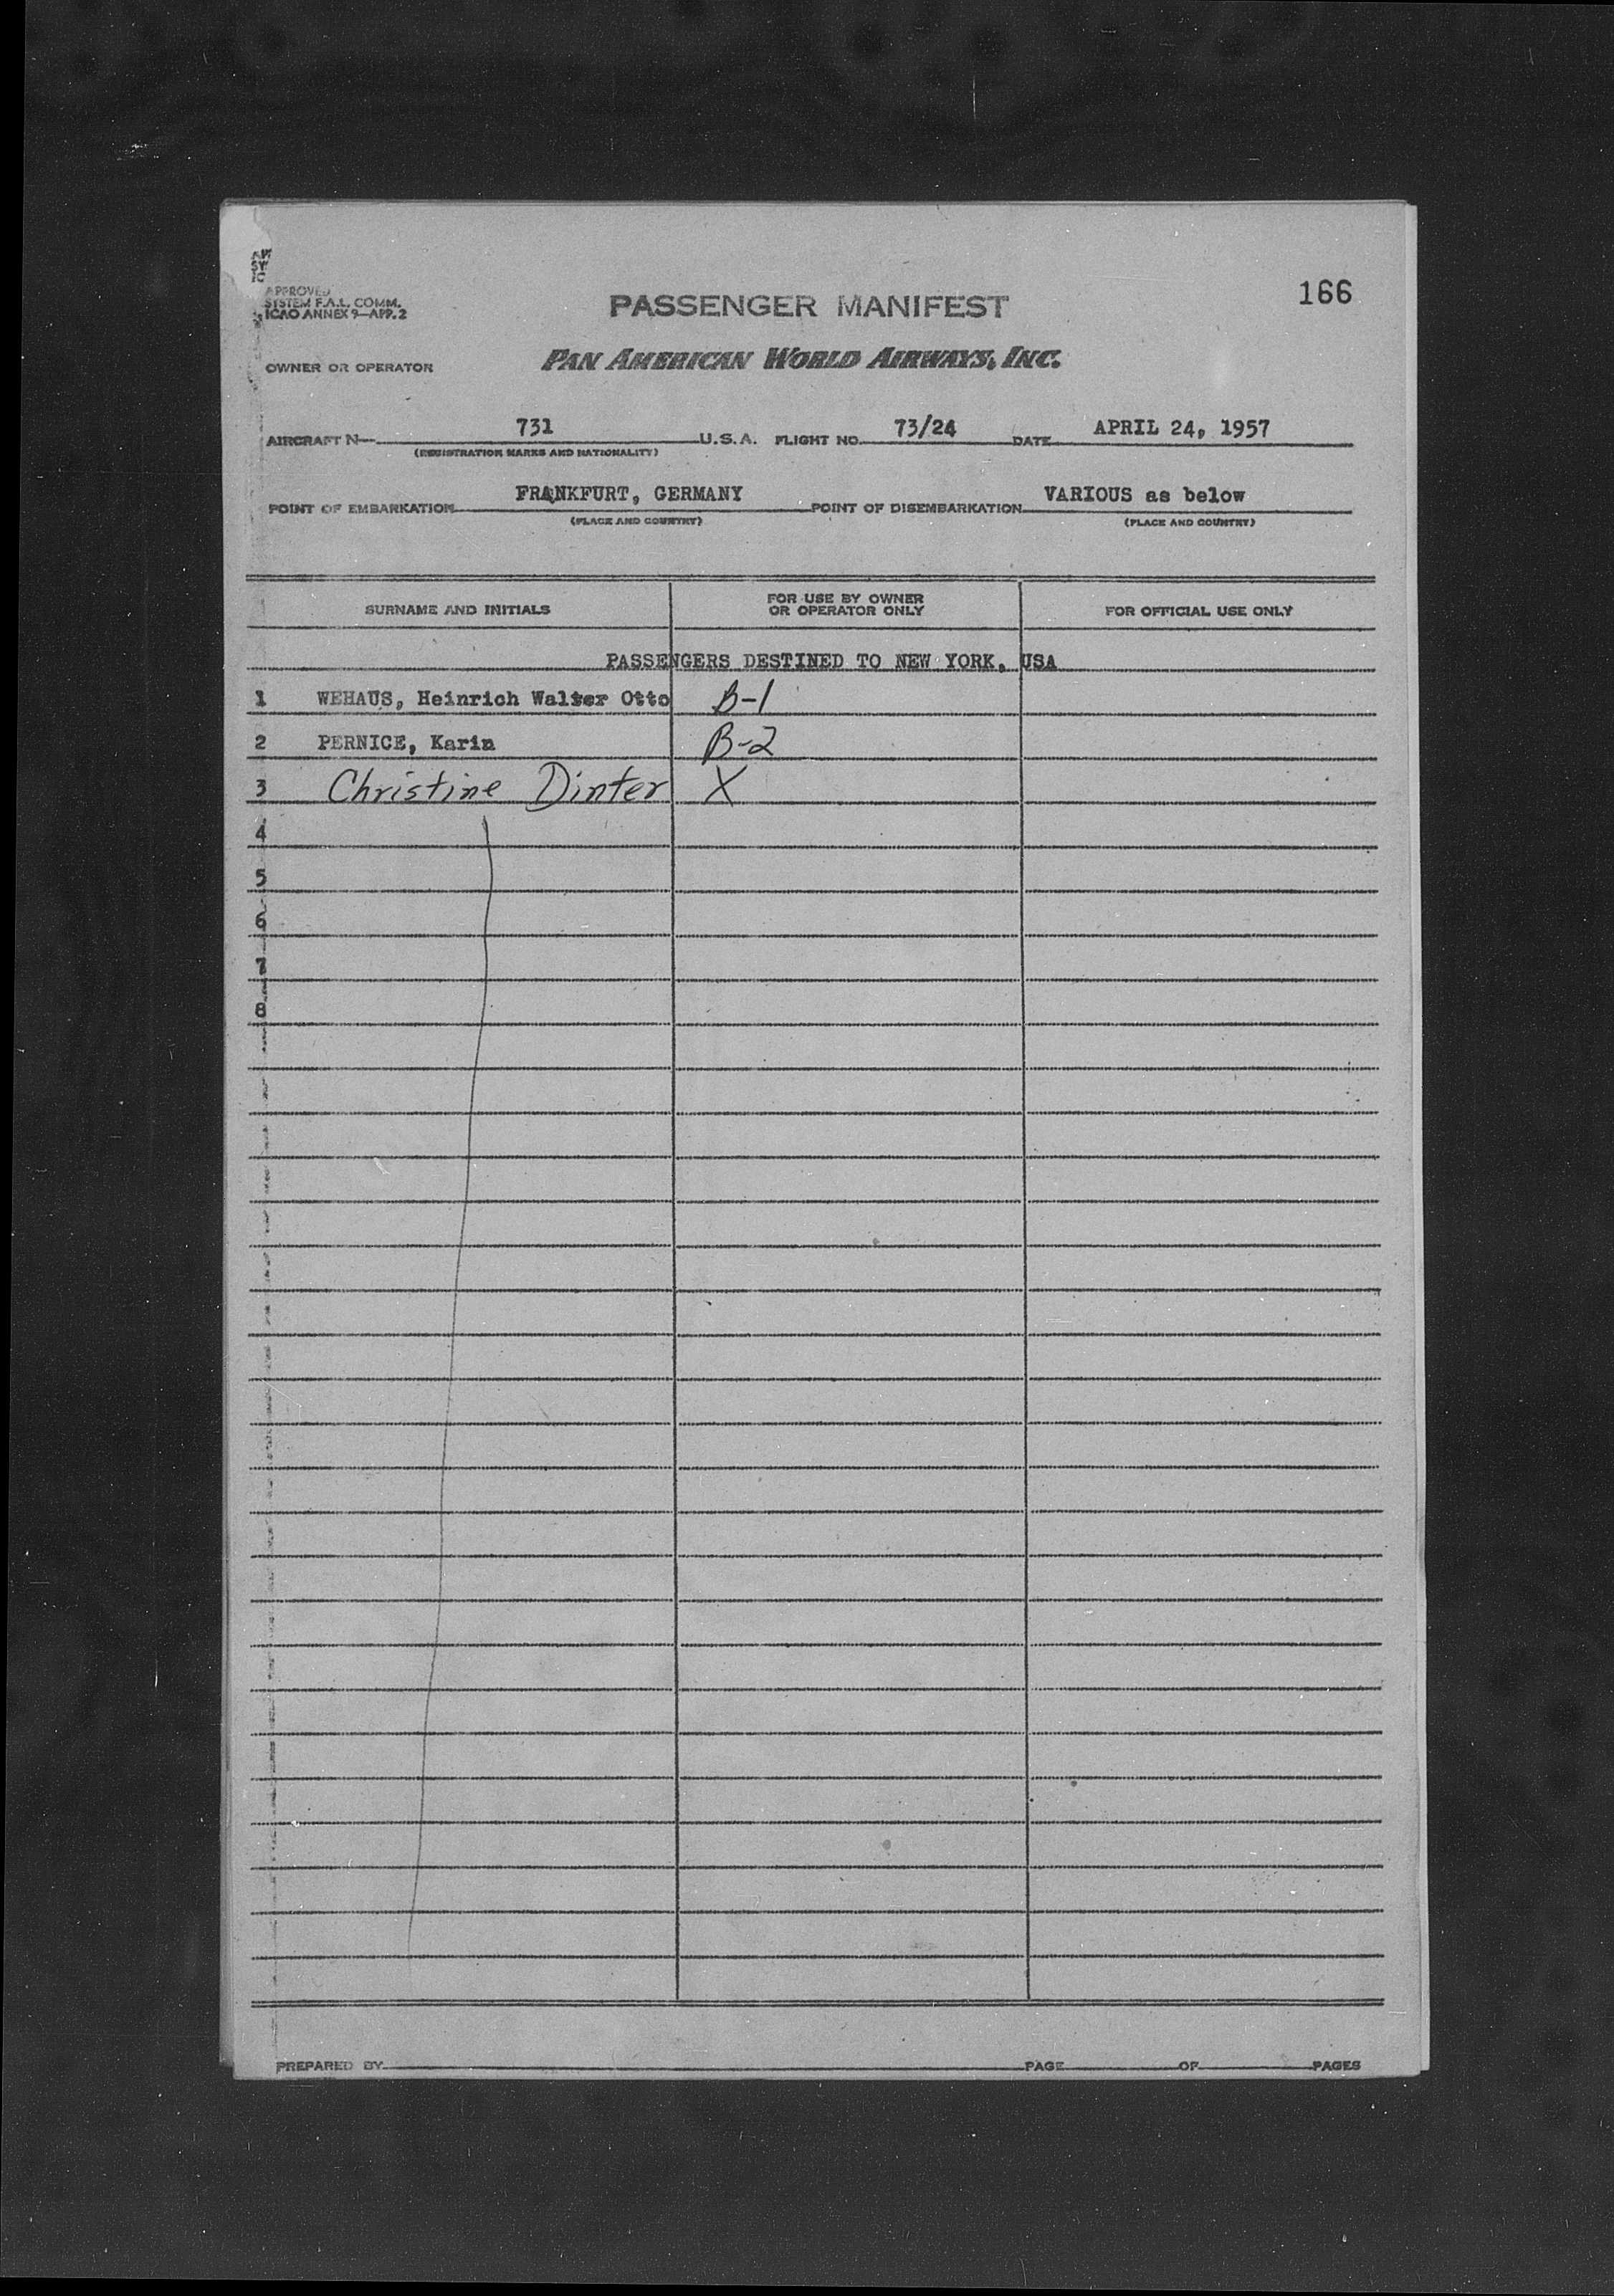 AP
SY
IC
APPROVED
SYSTEM F.A.L. COMM.
ICAO ANNEX 9—APP. 2
PASSENGER MANIFEST
166
OWNER OR OPERATOR
PAN AMERICAN WORLD AIRWAYS, INC.
AIRCRAFT N— 731 U.S.A. FLIGHT NO. 73/24 DATE APRIL 24, 1957
(REGISTRATION MARKS AND NATIONALITY)
POINT OF EMBARKATION FRANKFURT, GERMANY POINT OF DISEMBARKATION VARIOUS as below
(PLACE AND COUNTRY) (PLACE AND COUNTRY)
SURNAME AND INITIALS
FOR USE BY OWNER
OR OPERATOR ONLY
FOR OFFICIAL USE ONLY
PASSENGERS DESTINED TO NEW YORK, USA
1 WEHAUS, Heinrich Walter Otto B-1
2 PERNICE, Karin B-2
3 Christine Dinter X
4
5
6
7
8
PREPARED BY PAGE OF PAGES